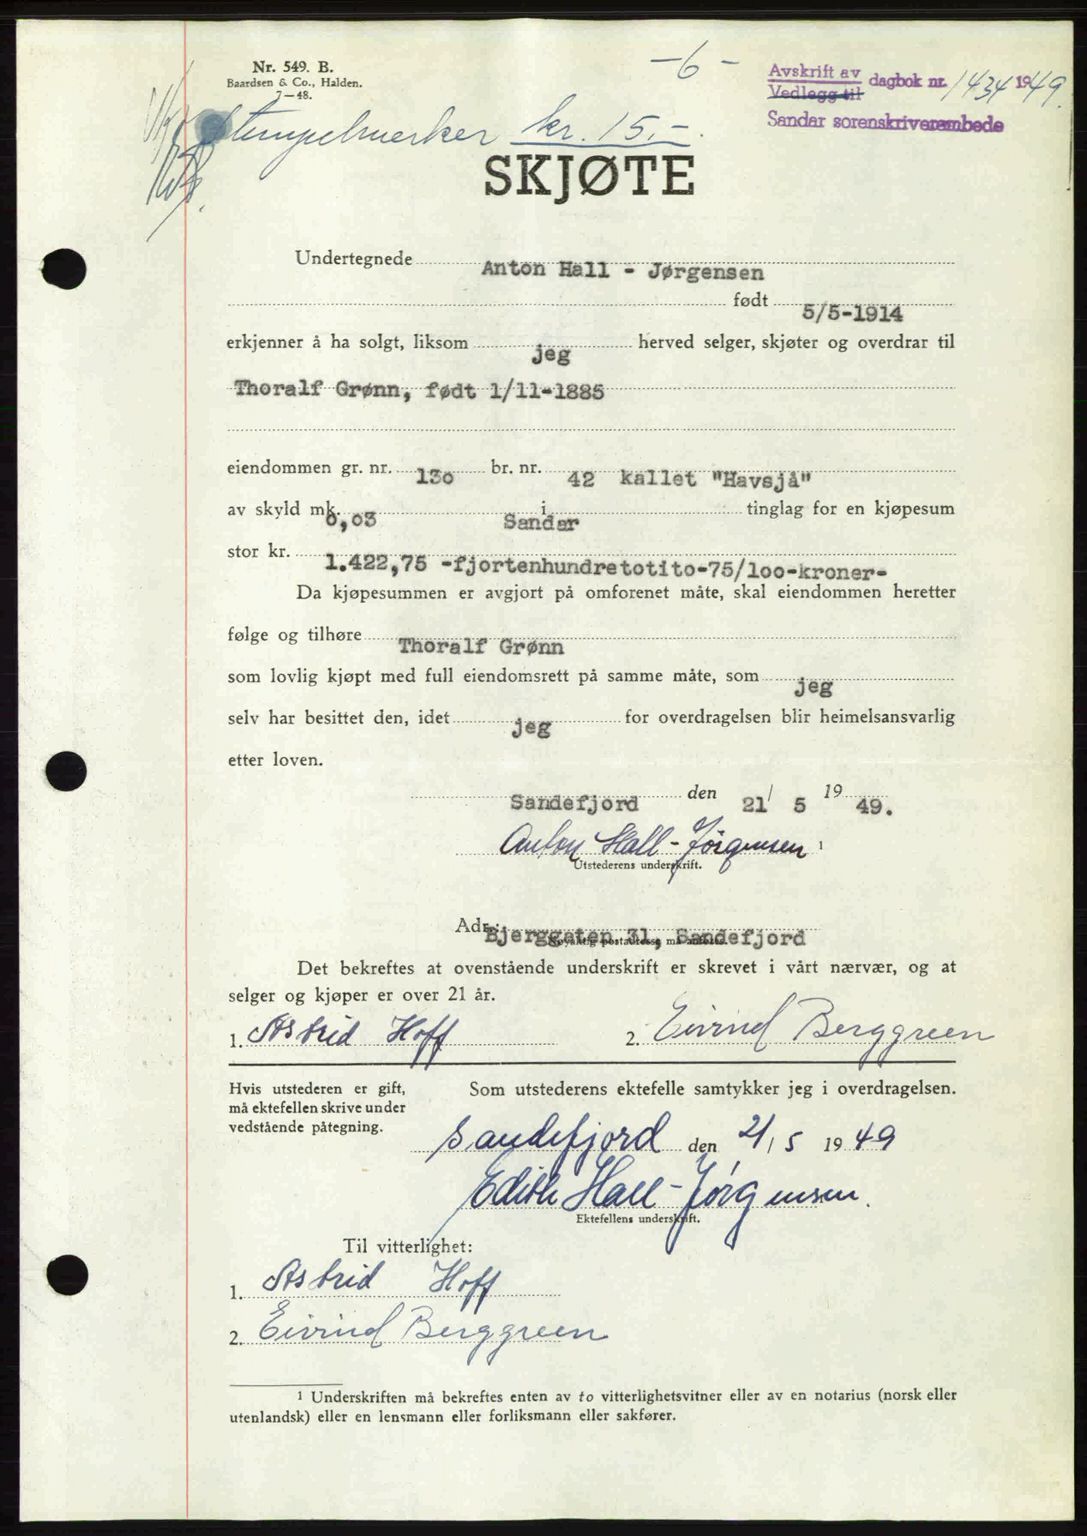 Nr. 549. B.
Baardsen & Co., Halden.
7—48.
-6-
Avskrift av
Vedlegg til
dagbok nr. 1434 1949.
Sandar sorenskriverembede
Stempelmerker kr. 15,-.
SKJØTE
Undertegnede Anton Hall - Jørgensen
født 5/5-1914
erkjenner å ha solgt, liksom jeg herved selger, skjøter og overdrar til
Thoralf Grønn, født 1/11-1885
eiendommen gr. nr. 130 br. nr. 42 kallet "Havsjå"
av skyld mk. 0,03 i Sandar tinglag for en kjøpesum
stor kr. 1.422,75 -fjortenhundretotito-75/100-kroner-
Da kjøpesummen er avgjort på omforenet måte, skal eiendommen heretter
følge og tilhøre Thoralf Grønn
som lovlig kjøpt med full eiendomsrett på samme måte, som jeg
selv har besittet den, idet jeg for overdragelsen blir heimelsansvarlig
etter loven.
Sandefjord den 21/ 5 19 49.
Anton Hall-Jørgensen 1
Utstederens underskrift.
Adr.: Bjerggaten 31, Sandefjord
Nøyaktig postadresse må anføres.
Det bekreftes at ovenstående underskrift er skrevet i vårt nærvær, og at
selger og kjøper er over 21 år.
1. Astrid Hoff 2. Eivind Berggreen
Hvis utstederen er gift,
må ektefellen skrive under
vedstående påtegning.
Som utstederens ektefelle samtykker jeg i overdragelsen.
Sandefjord den 21/5 1949
Edith Hall-Jørgensen.
Ektefellens underskrift.
Til vitterlighet:
1. Astrid Hoff
2. Eivind Berggreen
1 Underskriften må bekreftes enten av to vitterlighetsvitner eller av en notarius (norsk eller
utenlandsk) eller en lensmann eller forliksmann eller sakfører.